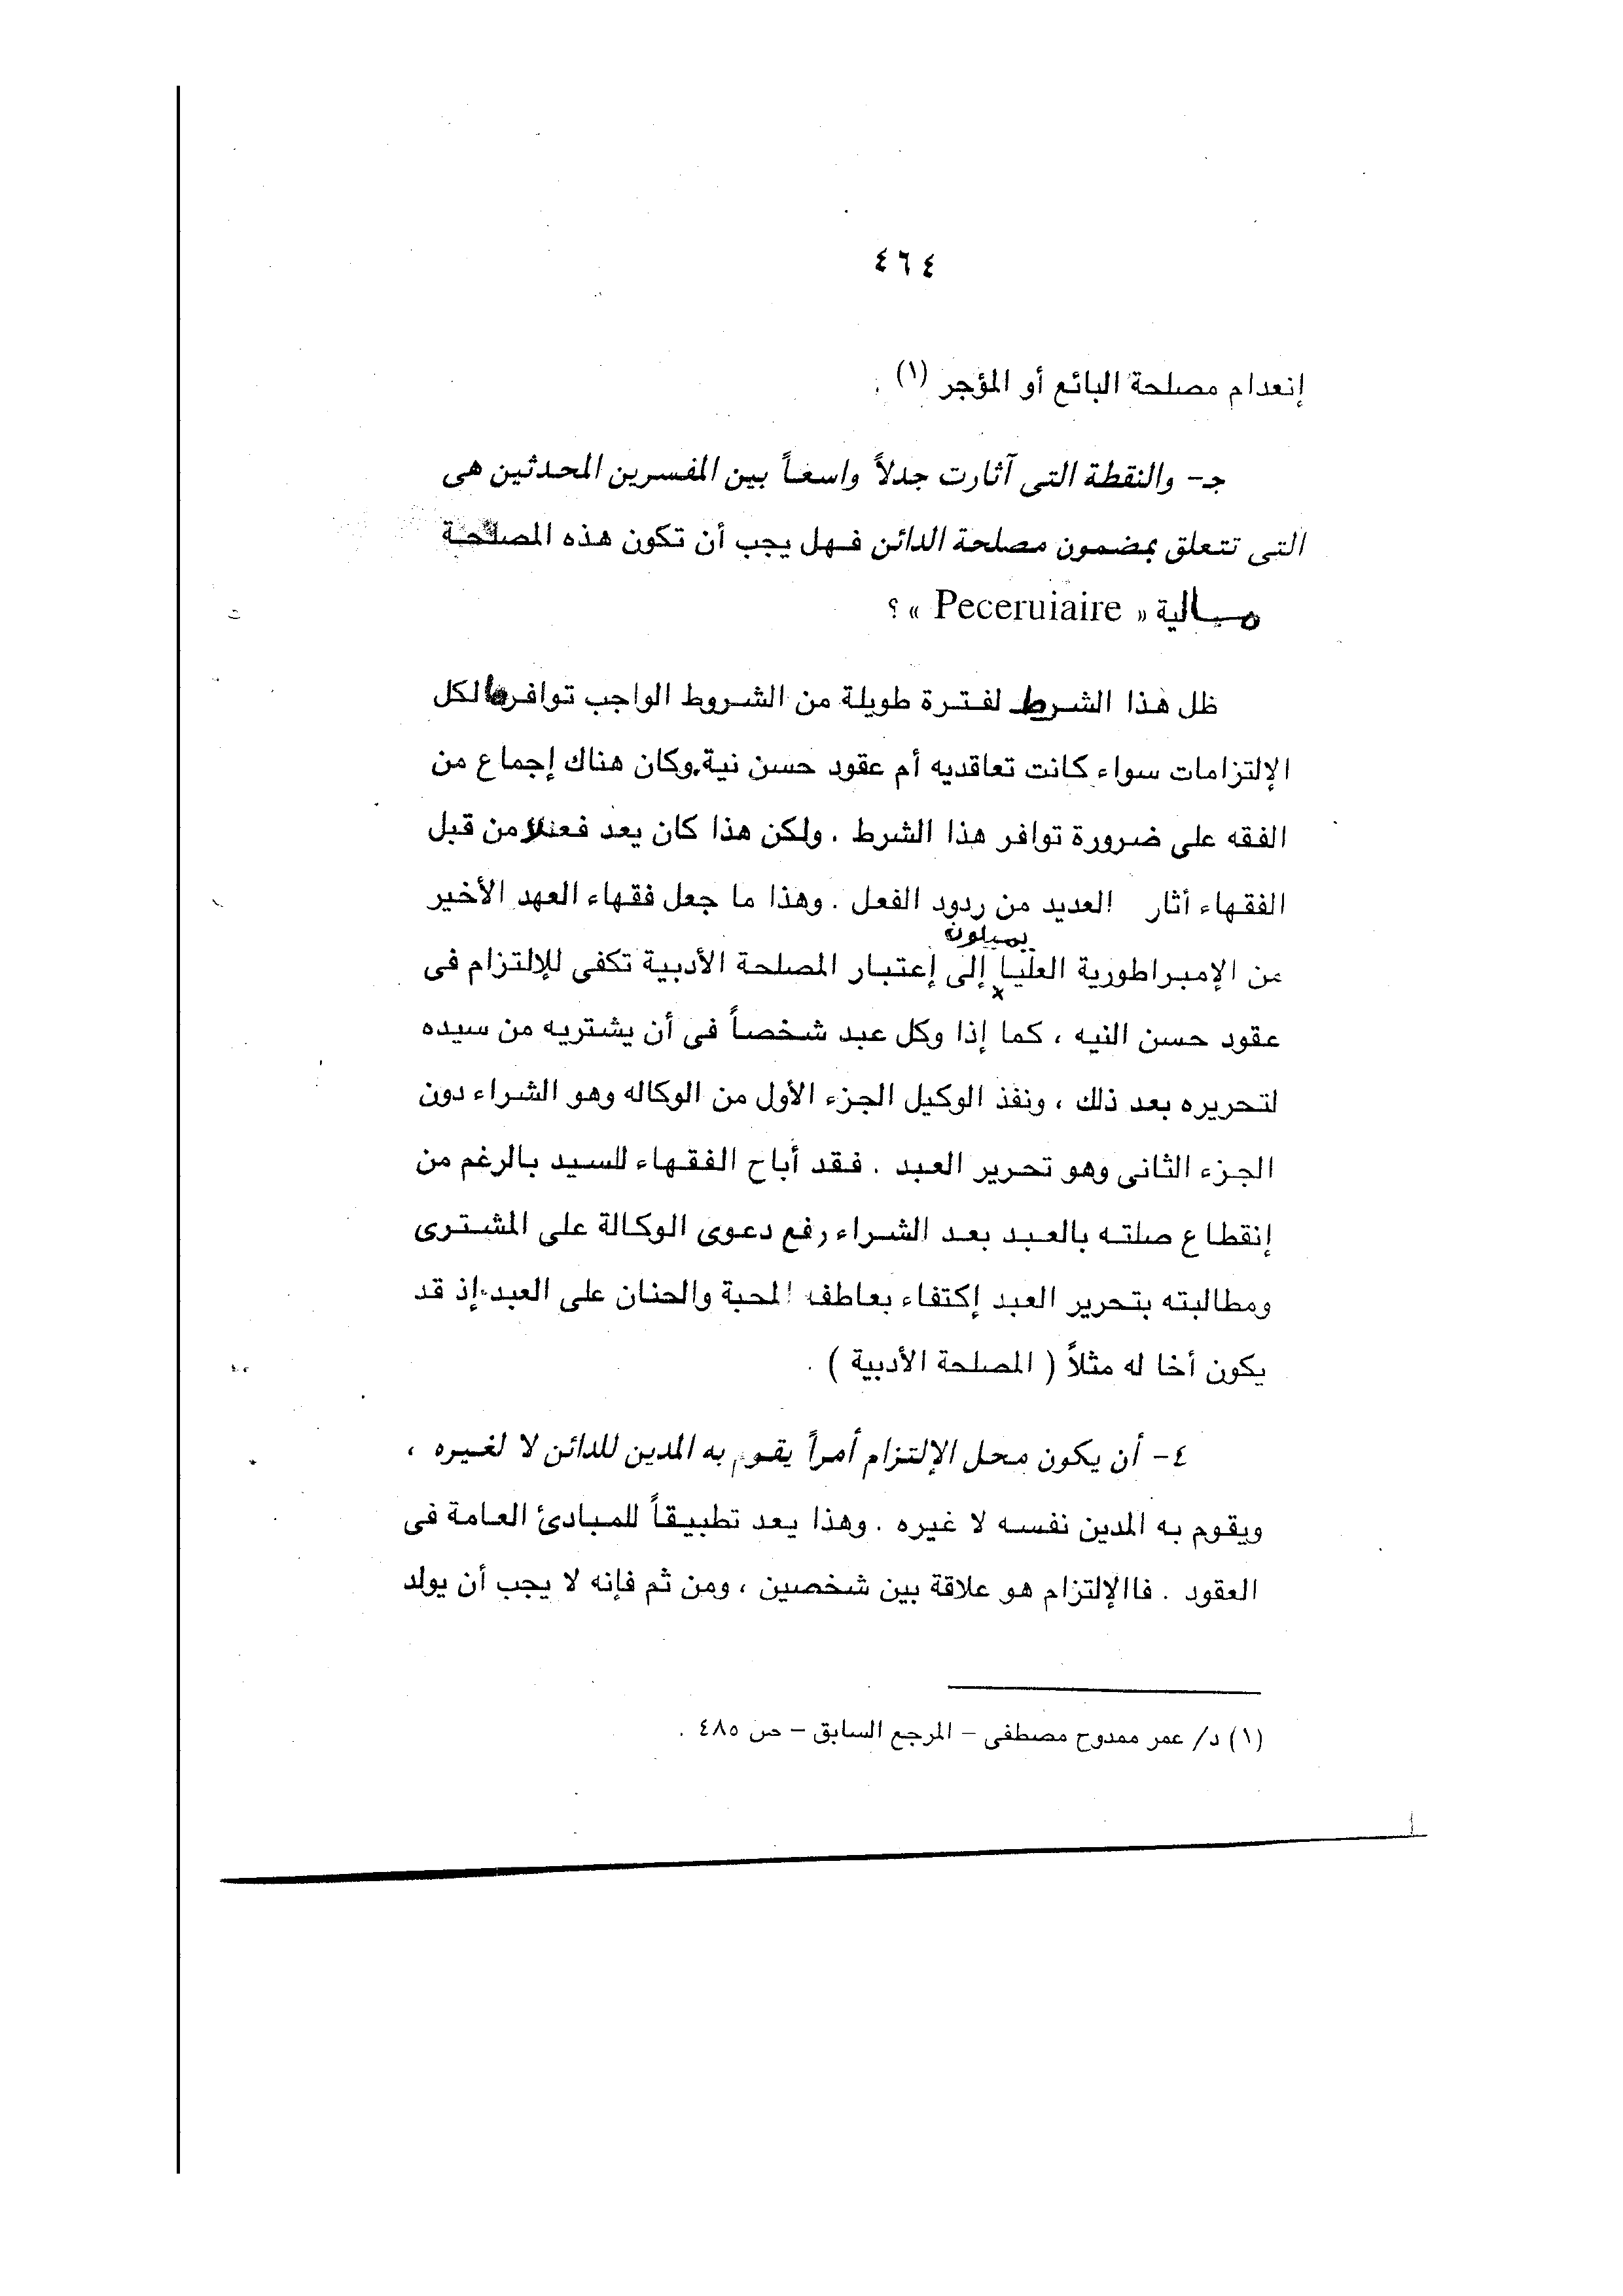 ٤٦٤
إنعدام مصلحة البائع أو المؤجر (١) .
جـ- والنقطة التى آثارت جدلاً واسعاً بين المفسرين المحدثين هى
التى تتعلق بمضمون مصلحة الدائن فهل يجب أن تكون هذه المصلحة
مالية « Peceruiaire » ؟
ظل هذا الشرط لفترة طويلة من الشروط الواجب توافرها لكل
الإلتزامات سواء كانت تعاقديه أم عقود حسن نية. وكان هناك إجماع من
الفقه على ضرورة توافر هذا الشرط . ولكن هذا كان يعد فعلا من قبل
الفقهاء أثار العديد من ردود الفعل . وهذا ما جعل فقهاء العهد الأخير
يميلون
من الإمبراطورية العليا إلى إعتبار المصلحة الأدبية تكفى للإلتزام فى
عقود حسن النيه ، كما إذا وكل عبد شخصاً فى أن يشتريه من سيده
لتحريره بعد ذلك ، ونفذ الوكيل الجزء الأول من الوكاله وهو الشراء دون
الجزء الثانى وهو تحرير العبد . فقد أباح الفقهاء للسيد بالرغم من
إنقطاع صلته بالعبد بعد الشراء رفع دعوى الوكالة على المشترى
ومطالبته بتحرير العبد إكتفاء بعاطفه المحبة والحنان على العبد. إذ قد
يكون أخا له مثلاً ( المصلحة الأدبية ) .
٤- أن يكون محل الإلتزام أمراً يقوم به المدين للدائن لا لغيره ،
ويقوم به المدين نفسه لا غيره . وهذا يعد تطبيقاً للمبادئ العامة فى
العقود . فاالإلتزام هو علاقة بين شخصين ، ومن ثم فإنه لا يجب أن يولد
(١) د/ عمر ممدوح مصطفى - المرجع السابق - ص ٤٨٥ .